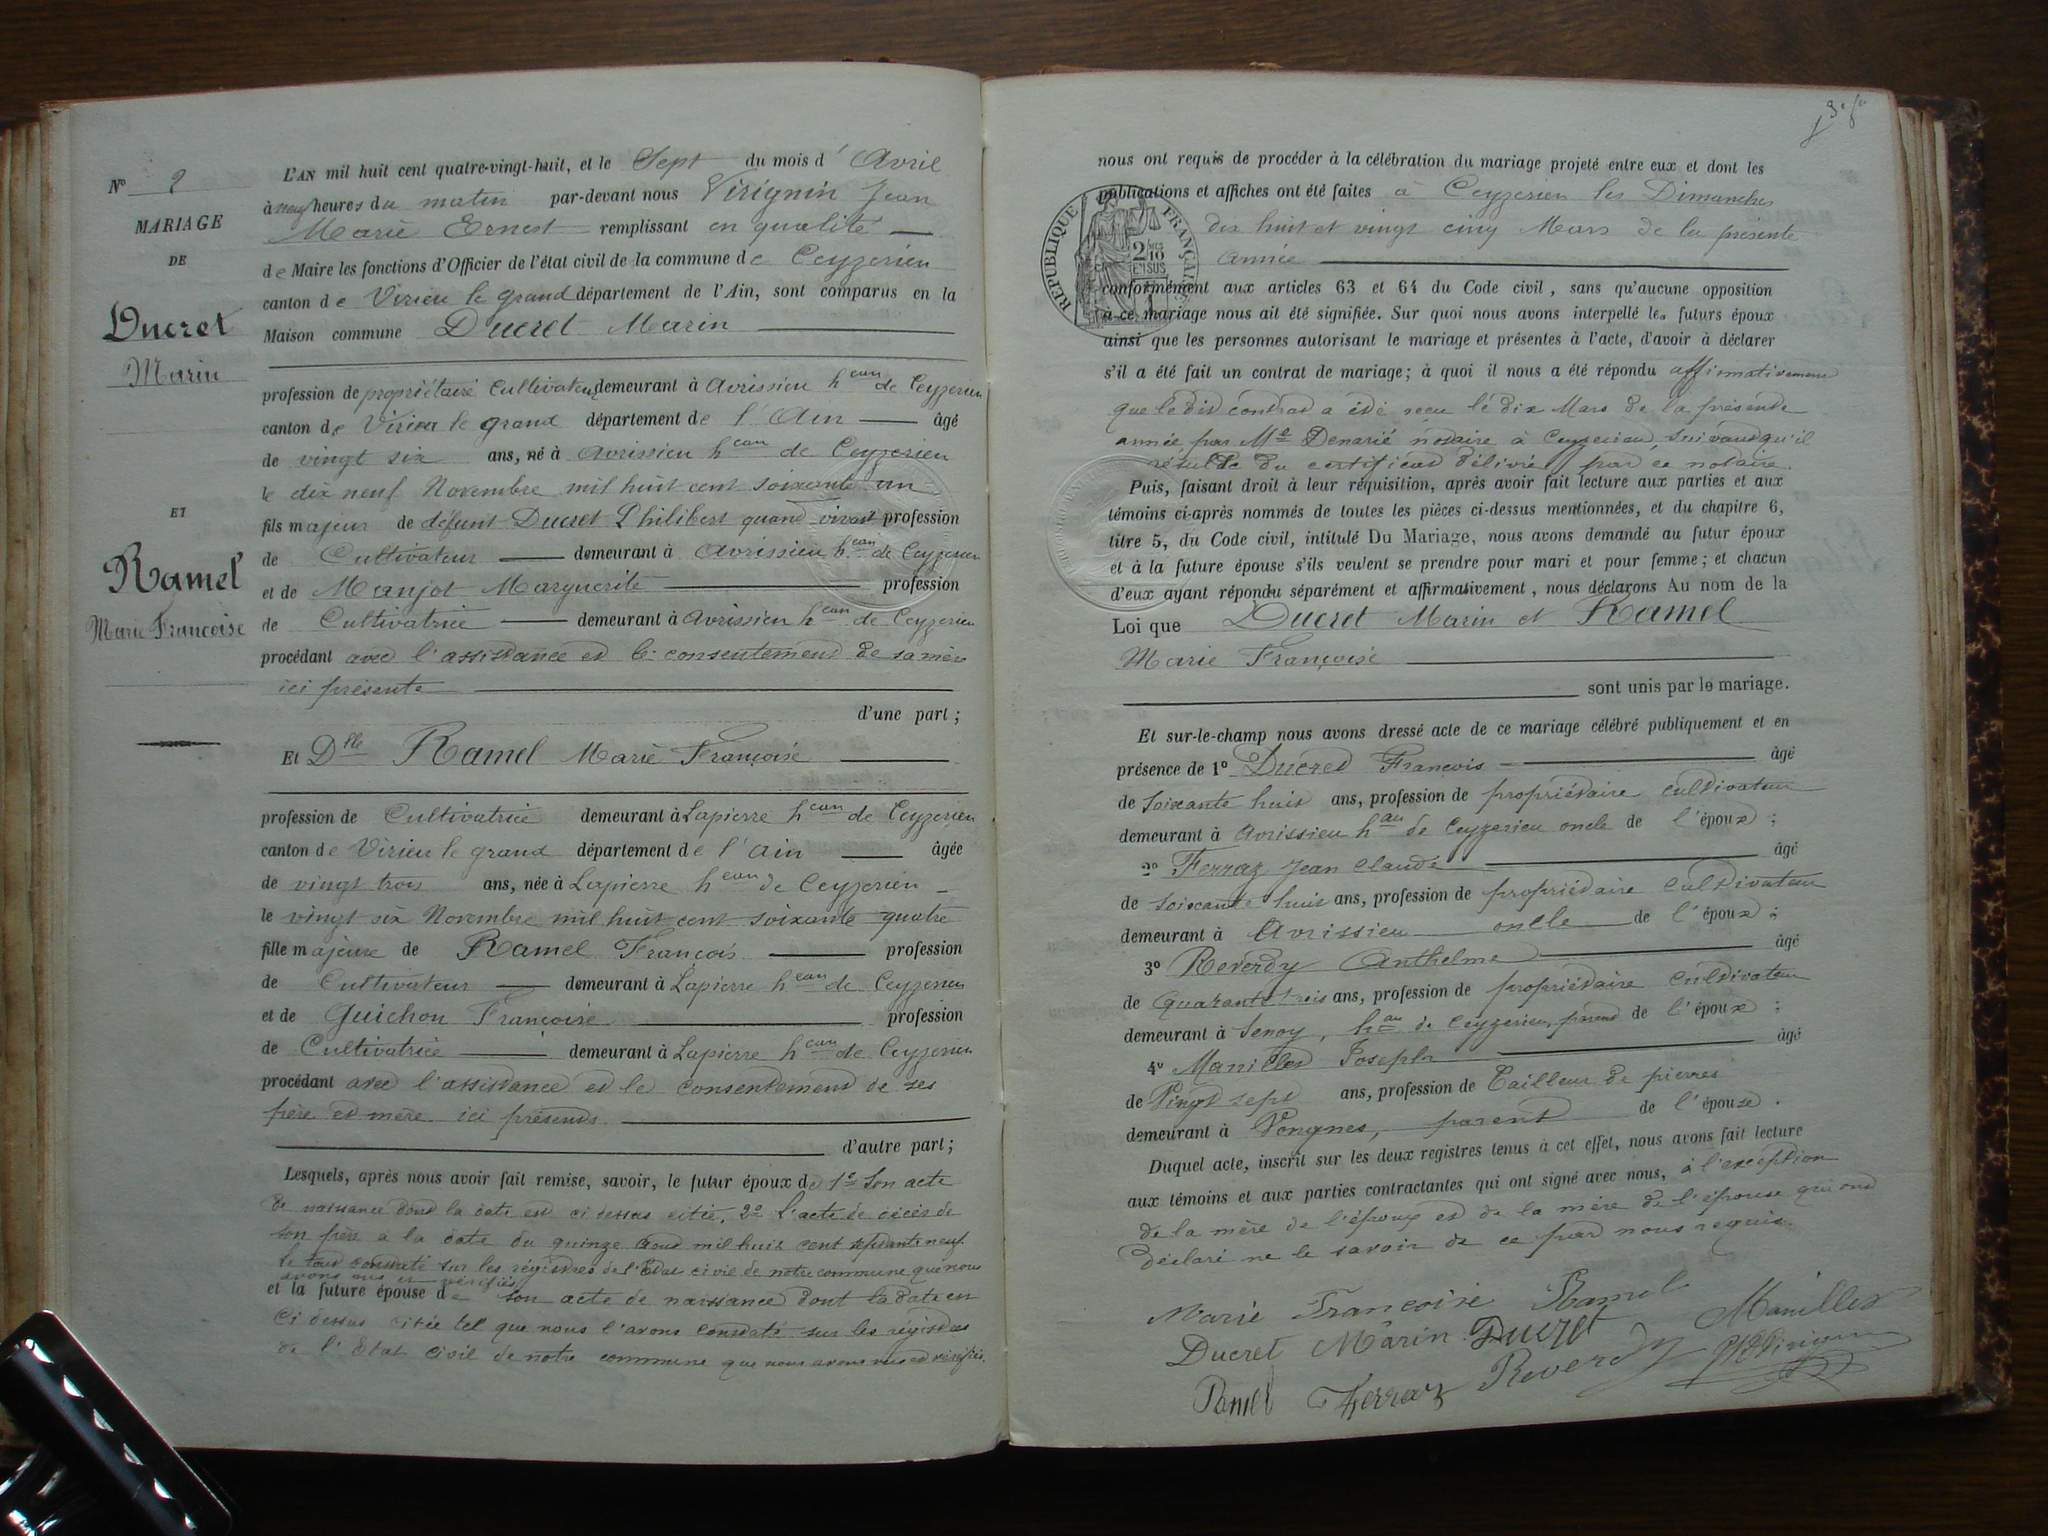 N° 2
MARIAGE
DE
Ducret
Marin
ET
Ramel
Marie Françoise
L'AN mil huit cent quatre-vingt-huit, et le Sept du mois d' Avril
à neuf heures du matin par-devant nous Virignin Jean
Marie Ernest remplissant en qualité
de Maire les fonctions d'Officier de l'état civil de la commune de Ceyzerieu
canton de Virieu le grand département de l'Ain, sont comparus en la
Maison commune Ducret Marin
profession de propriétaire Cultivateur demeurant à Avrissieu heau de Ceyzerieu
canton de Virieu le grand département de l'Ain âgé
de vingt six ans, né à Avrissieu heau de Ceyzerieu
le dix neuf Novembre mil huit cent soixante un
fils majeur de défunt Ducret Philibert quand vivait profession
de Cultivateur demeurant à Avrissieu heau de Ceyzerieu
et de Manjot Marguerite profession
de Cultivatrice demeurant à Avrissieu heau de Ceyzerieu
procédant avec l'assistance et le consentement de sa mère
ici présente
d'une part ;
Et Dlle Ramel Marie Françoise
profession de Cultivatrice demeurant à Lapierre heau de Ceyzerieu
canton de Virieu le grand département de l'Ain âgée
de vingt trois ans, née à Lapierre heau de Ceyzerieu
le vingt six Novembre mil huit cent soixante quatre
fille majeure de Ramel François profession
de Cultivateur demeurant à Lapierre heau de Ceyzerieu
et de Guichon Françoise profession
de Cultivatrice demeurant à Lapierre heau de Ceyzerieu
procédant avec l'assistance et le consentement de ses
père et mère ici présents
d'autre part ;
Lesquels, après nous avoir fait remise, savoir, le futur époux de 1° Son acte
de naissance dont la date est ci dessus citée, 2° L'acte de décès de
son père a la date du quinze Aout mil huit cent septante neuf
le tout constaté sur les régistres de l'Etat civil de notre commune que nous
avons vus et vérifiés
et la future épouse de son acte de naissance dont la date est
Ci dessus citée tel que nous l'avons constaté sur les régistres
de l'Etat Civil de notre commune que nous avons vus et vérifiés.
nous ont requis de procéder à la célébration du mariage projeté entre eux et dont les
publications et affiches ont été faites à Ceyzerieu les Dimanches
dix huit et vingt cinq Mars de la présente
année
RÉPUBLIQUE FRANÇAISE
2/10
EN SUS
conformément aux articles 63 et 64 du Code civil, sans qu'aucune opposition
à ce mariage nous ait été signifiée. Sur quoi nous avons interpellé les futurs époux
ainsi que les personnes autorisant le mariage et présentes à l'acte, d'avoir à déclarer
s'il a été fait un contrat de mariage; à quoi il nous a été répondu affirmativement
que le dit contrat a été reçu le dix Mars de la présente
année par Me Denarié notaire à Ceyzerieu, suivant qu'il
résulte du certificat délivré par ce notaire.
Puis, faisant droit à leur réquisition, après avoir fait lecture aux parties et aux
témoins ci-après nommés de toutes les pièces ci-dessus mentionnées, et du chapitre 6,
titre 5, du Code civil, intitulé Du Mariage, nous avons demandé au futur époux
et à la future épouse s'ils veulent se prendre pour mari et pour femme ; et chacun
d'eux ayant répondu séparément et affirmativement, nous déclarons Au nom de la
Loi que Ducret Marin et Ramel
Marie Françoise
sont unis par le mariage.
Et sur-le-champ nous avons dressé acte de ce mariage célébré publiquement et en
présence de 1° Ducret François âgé
de soixante huit ans, profession de propriétaire cultivateur
demeurant à Avrissieu hau de Ceyzerieu oncle de l'époux ;
2° Ferraz Jean Claude âgé
de soixante huit ans, profession de propriétaire cultivateur
demeurant à Avrissieu oncle de l'époux ;
3° Reverdy Anthelme âgé
de Quarante trois ans, profession de propriétaire cultivateur
demeurant à Senoy, hau de Ceyzerieu, parent de l'époux ;
4° Manillier Joseph âgé
de Vingt sept ans, profession de Tailleur de pierres
demeurant à Vongnes, parent de l'épouse.
Duquel acte, inscrit sur les deux registres tenus à cet effet, nous avons fait lecture
aux témoins et aux parties contractantes qui ont signé avec nous, à l'exception
de la mère de l'époux et de la mère de l'épouse qui ont
déclaré ne le savoir de ce par nous requis.
Marie Françoise Ramel
Manillier
Ducret Marin Ducret
Ramel Ferraz Reverdy